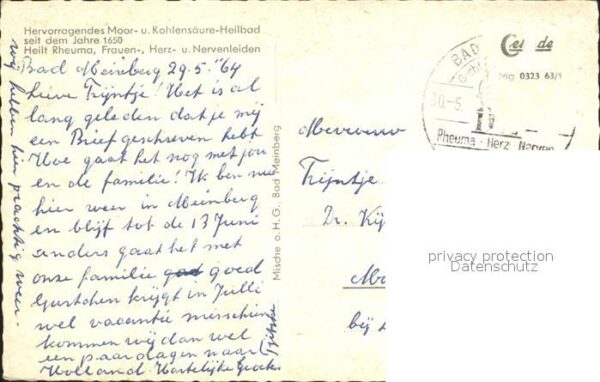 Hervorragendes Moor- u. Kohlensäure-Heilbad
seit dem Jahre 1650
Heilt Rheuma, Frauen-, Herz- u. Nervenleiden
Bad Meinberg 29.5.'64
lieve Trijntje! Het is al
lang geleden dat je mij
een Brief geschreven hebt
Hoe gaat het nog met jou
en de familie! Ik ben nu
hier weer in Meinberg
en blijf tot de 13 Juni
anders gaat het met
onze familie goed
krijgt in Julli
wel vacantie misschien
kommen wij dan wel
een paar dagen naar
Holland. Hartelijke Groet
Tjitske
wij hebben hier prachtig weer.
Mische o.H.G., Bad Meinberg
BAD
30.-5.
Rheuma-Herz-Nerven
0323 63/1
Mevrouw
Trijntje
bij
privacy protection
Datenschutz